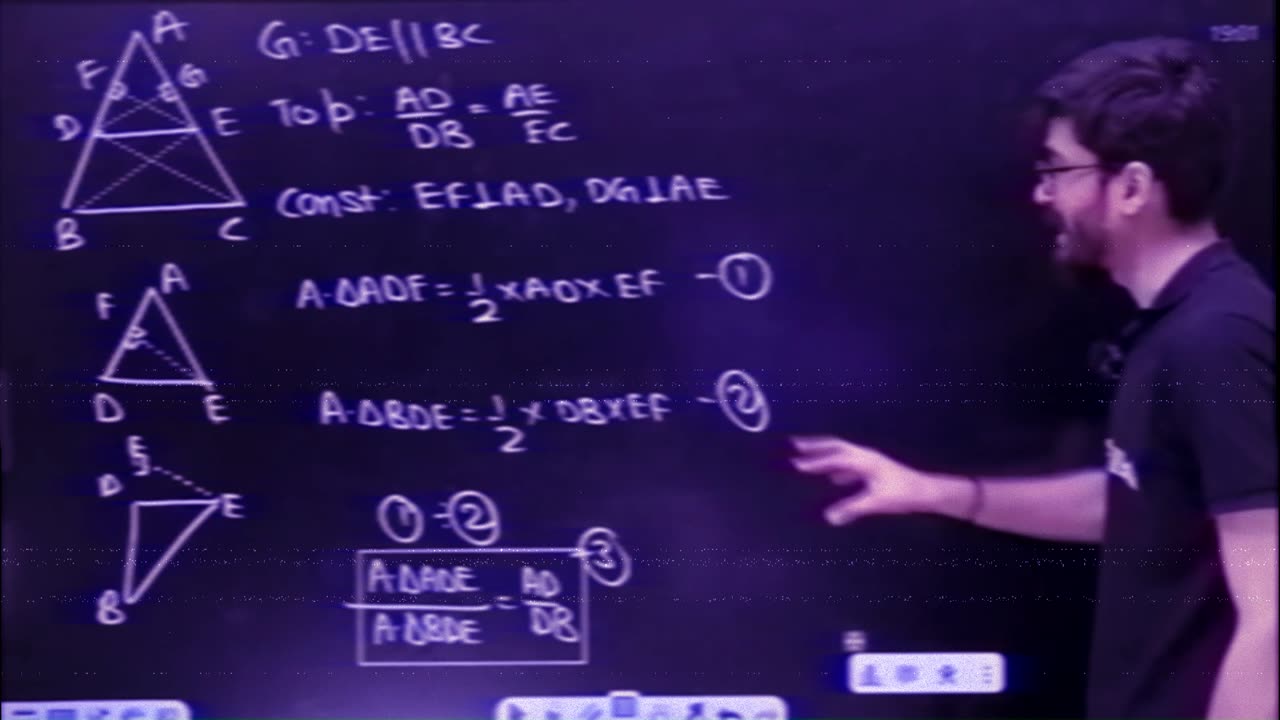 A
F G
D E
B C
G: DE||BC
To p: AD/DB = AE/EC
Const: EF⊥AD, DG⊥AE
A
F
D E
A·ΔADF = 1/2 × AD × EF - ①
A·ΔBDE = 1/2 × DB × EF - ②
D
E
B
① ÷ ②
A·ΔADE/A·ΔBDE = AD/DB - ③
19:01